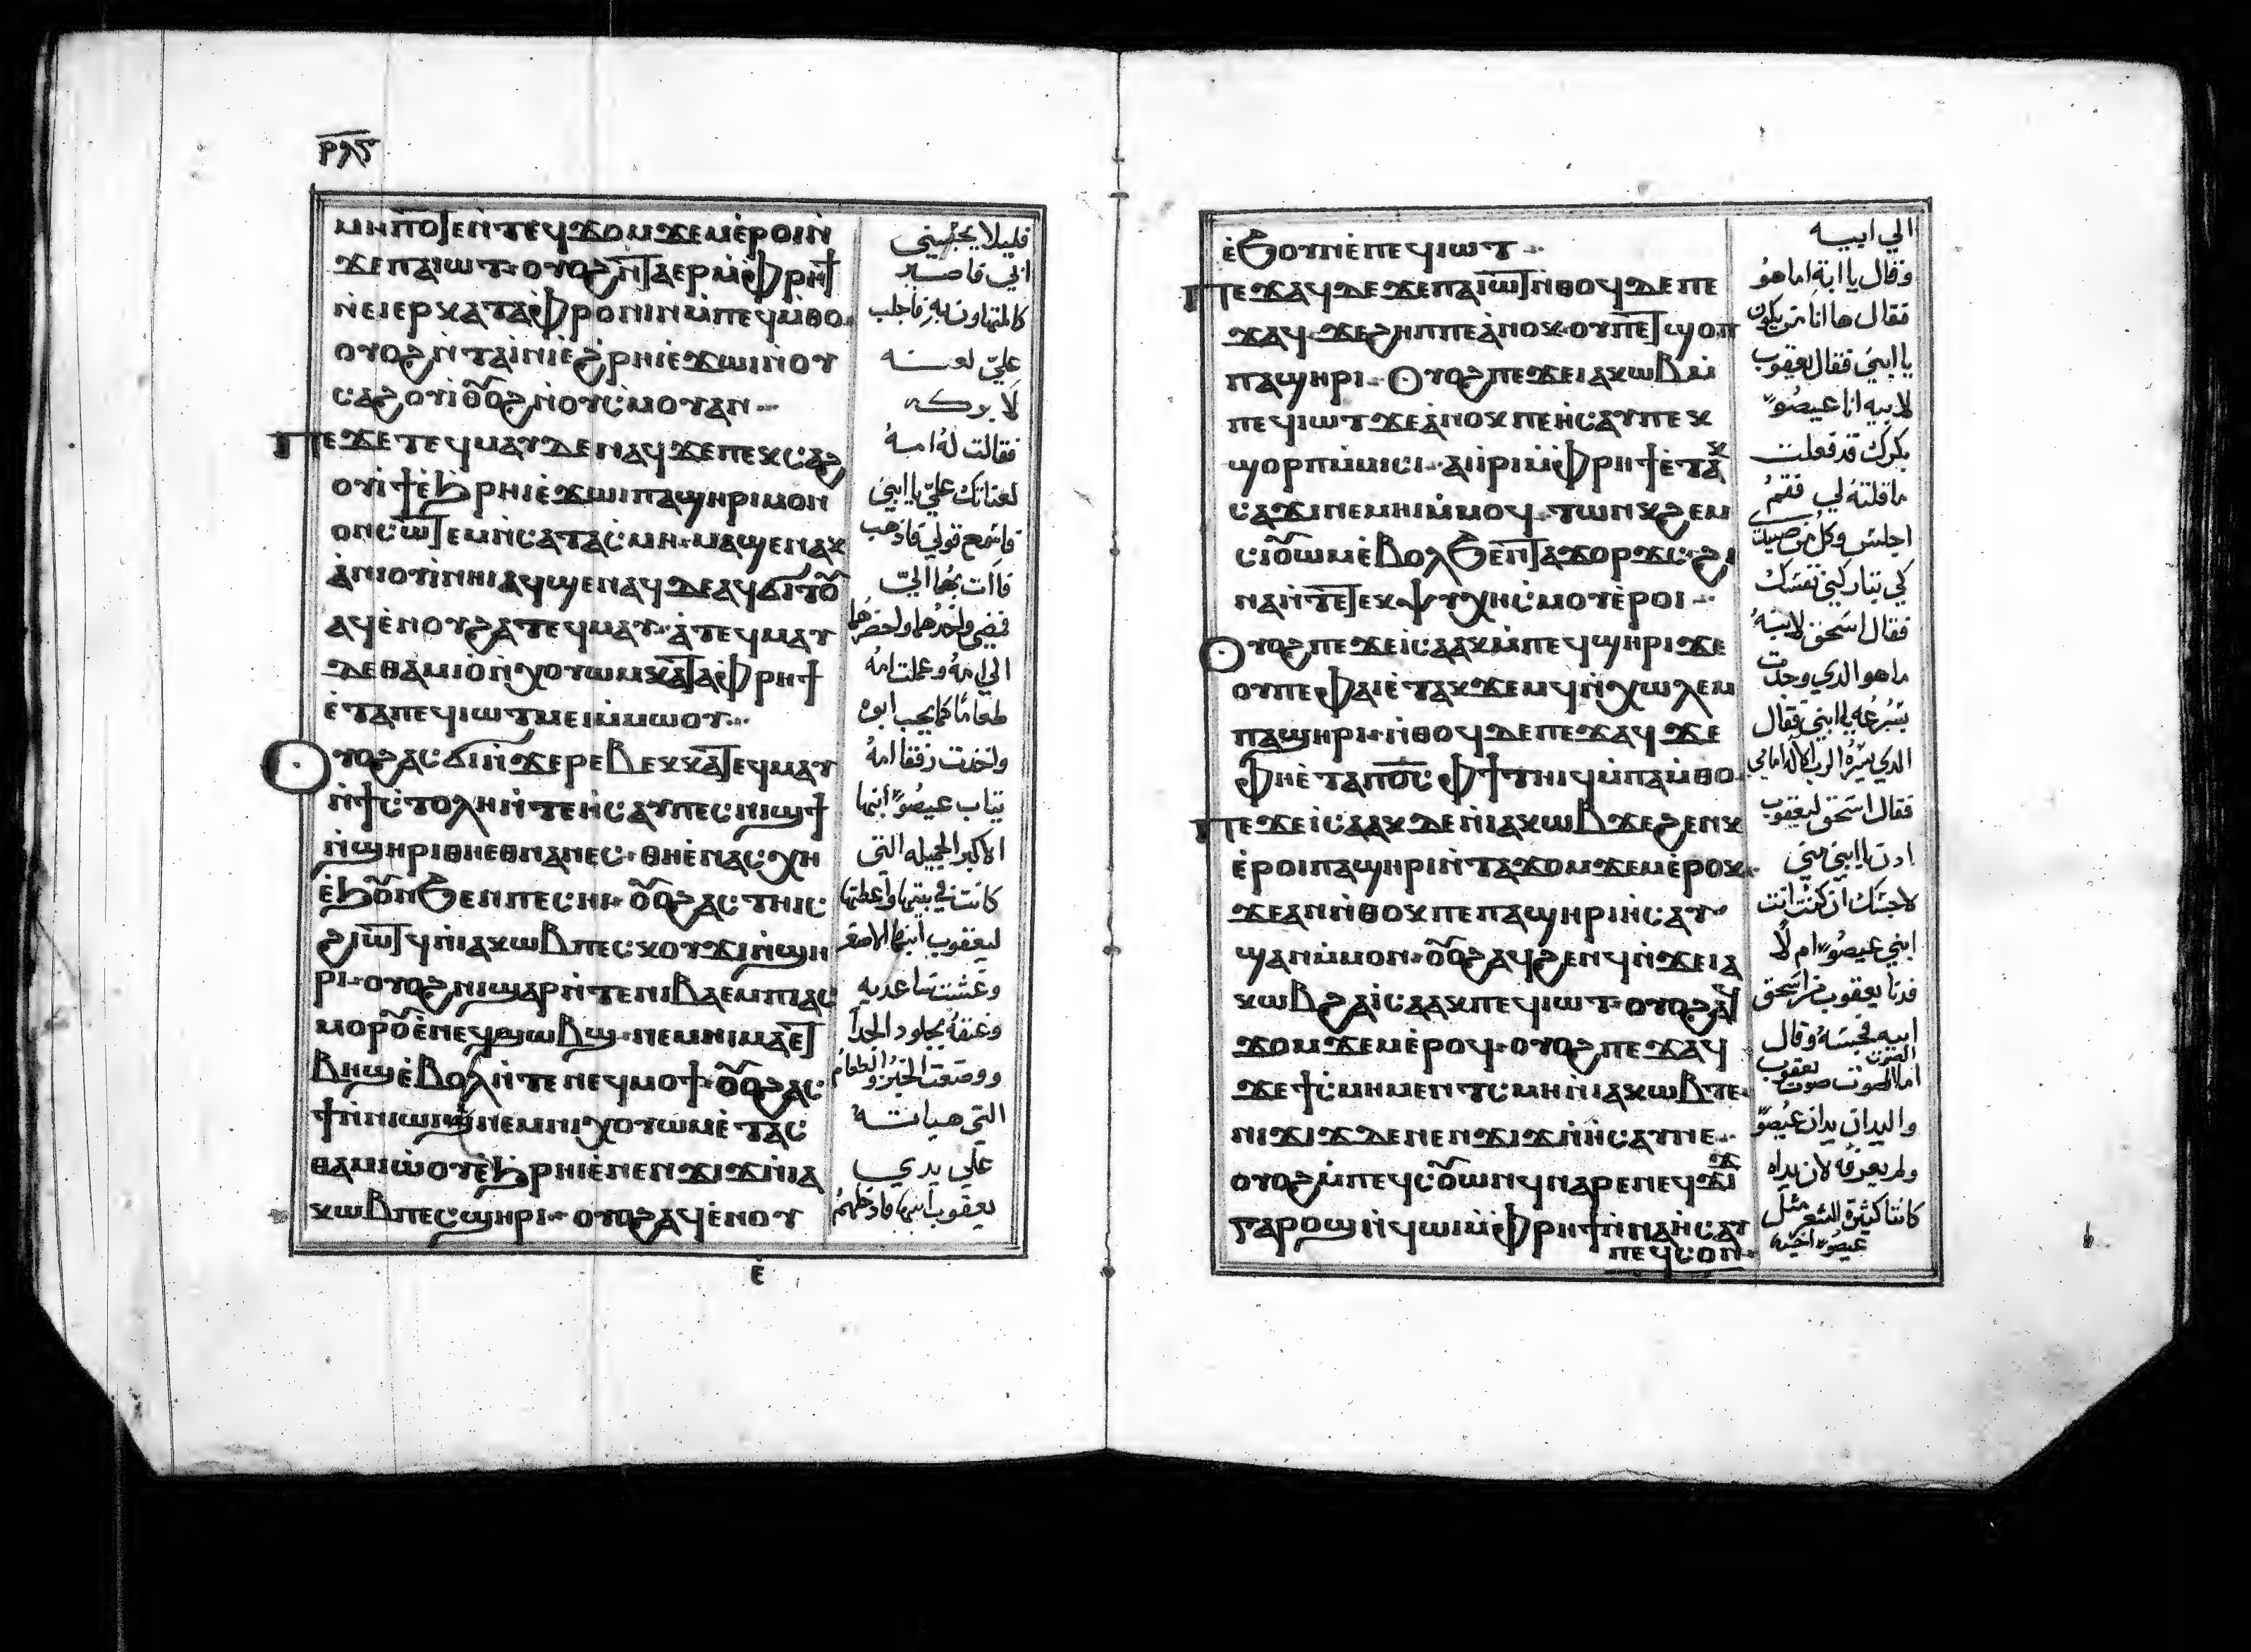 ⲣⲗⲋ
ⲙⲏⲡⲟϯⲉⲛⲧⲉϥϫⲟⲙϫⲉⲙⲉⲣⲟⲓⲛ
ϫⲉⲡⲁⲓⲱⲧ ⲟⲩⲟϩⲛⲧⲁⲉⲣⲙⲫⲣⲏϯ
ⲛⲉⲓⲉⲣⲕⲁⲧⲁⲫⲣⲟⲛⲓⲛⲙⲡⲉϥⲙⲑⲟ
ⲟⲩⲟϩⲛⲧⲁⲓⲛⲓⲉϩⲣⲏⲓⲉϫⲱⲓⲛⲟⲩ
ⲥⲁϩⲟⲩⲓⲟⲩⲟϩⲛⲟⲩⲥⲙⲟⲩⲁⲛ
ⲡⲉϫⲉⲧⲉϥⲙⲁⲩⲇⲉⲛⲁϥϫⲉⲡⲉⲕⲥⲁϩ
ⲟⲩⲓϯⲉϧⲣⲏⲓⲉϫⲱⲓⲡⲁϣⲏⲣⲓⲙⲟⲛ
ⲟⲛⲥⲱⲧⲉⲙⲛⲥⲁⲧⲁⲥⲙⲏ ⲙⲁϣⲉⲛⲁⲕ
ⲁⲛⲓⲟⲩⲓⲛⲏⲓⲁϥϣⲉⲛⲁϥⲇⲉⲁϥϭⲓⲧⲟⲩ
ⲁϥⲉⲛⲟⲩϩⲁⲧⲉϥⲙⲁⲩ ⲁⲧⲉϥⲙⲁⲩ
ⲇⲉⲑⲁⲙⲓⲟⲛϩⲟⲩⲱⲙⲕⲁⲧⲁⲫⲣⲏϯ
ⲉⲧⲁⲡⲉϥⲓⲱⲧⲙⲉⲓⲙⲙⲱⲟⲩ
ⲟⲩⲟϩⲁⲥϭⲓⲛϫⲉⲣⲉⲃⲉⲕⲕⲁⲧⲉϥⲙⲁⲩ
ⲛϯⲥⲧⲟⲗⲏⲛⲧⲉⲏⲥⲁⲩⲡⲉⲥⲛⲓϣϯ
ⲛϣⲏⲣⲓⲑⲏⲉⲑⲛⲁⲛⲉⲥ ⲑⲏⲉⲛⲁⲥⲭⲏ
ⲉϧⲟⲩⲛϧⲉⲛⲡⲉⲥⲏⲓ ⲟⲩⲟϩⲁⲥⲧⲏⲓⲥ
ϩⲓⲱⲧϥⲛⲓⲁⲕⲱⲃⲡⲉⲥⲕⲟⲩϫⲓⲛϣⲏ
ⲣⲓ ⲟⲩⲟϩⲛⲓϣⲁⲣⲛⲧⲉⲛⲓⲃⲁⲉⲙⲡⲓⲁⲥ
ⲙⲟⲣⲟⲩⲉⲛⲉϥϣⲱⲃϣ ⲛⲉⲙⲛⲓⲙⲁⲉⲧ
ⲃⲏϣⲉⲃⲟⲗⲛⲧⲉⲛⲉϥⲙⲟϯ ⲟⲩⲟϩⲁⲥ
ϯⲛⲛⲓⲱⲓⲕⲛⲉⲙⲛⲓϭⲟⲩⲱⲙⲉⲧⲁⲥ
ⲑⲁⲙⲓⲱⲟⲩⲉϧⲣⲏⲓⲉⲛⲉⲛϫⲓϫⲛⲓⲁ
ⲕⲱⲃⲡⲉⲥϣⲏⲣⲓ ⲟⲩⲟϩⲁϥⲉⲛⲟⲩ
ⲉ
قليلا يجسني
ابي فاصير
كالمتهاون به فاجلب
علي لعنه
لا بركه
فقالت له امه
لعناتك علي يا ابني
فاسمع قولي فاذهب
فاات بهما الي
فمضي واخدهما واحضرهما
الي امه وعملت امه
طعاما كما يحب ابوه
واخدت رفقا امه
تياب عيصو ابنها
الاكبر الجميله التي
كانت في بيتها واعطتها
ليعقوب ابنها الاصغر
وغشت ساعديه
وعنقه بجلود الجدا
ووضعت الخبز والطعام
التي هياته
علي يدي
يعقوب ابنها فادخلهم
ⲉϧⲟⲩⲛⲉⲡⲉϥⲓⲱⲧ
ⲡⲉϫⲁϥⲇⲉϫⲉⲡⲁⲓⲱⲧⲛⲑⲟϥⲇⲉⲡⲉ
ϫⲁϥ ϫⲉϩⲏⲡⲡⲉⲁⲛⲟⲕ ⲟⲩⲡⲉⲧϣⲟⲡ
ⲡⲁϣⲏⲣⲓ ⲟⲩⲟϩⲡⲉϫⲉⲓⲁⲕⲱⲃⲙ
ⲡⲉϥⲓⲱⲧϫⲉⲁⲛⲟⲕⲡⲉⲏⲥⲁⲩⲡⲉⲕ
ϣⲟⲣⲡⲙⲙⲓⲥⲓ ⲁⲓⲓⲣⲓⲙⲫⲣⲏϯⲉⲧⲁⲕ
ⲥⲁϫⲓⲛⲉⲙⲏⲓⲙⲙⲟϥ ⲧⲱⲛⲕϩⲉⲙ
ⲥⲓⲟⲩⲱⲙⲉⲃⲟⲗϧⲉⲛⲧⲁϫⲟⲣϫⲥ ϩⲓ
ⲛⲁⲛⲧⲉⲧⲉⲕⲯⲩⲭⲏⲥⲙⲟⲩⲉⲣⲟⲓ
ⲟⲩⲟϩⲡⲉϫⲉⲓⲥⲁⲁⲕⲙⲡⲉϥϣⲏⲣⲓϫⲉ
ⲟⲩⲡⲉⲫⲁⲓⲉⲧⲁⲕϫⲉⲙϥⲛⲭⲱⲗⲉⲙ
ⲡⲁϣⲏⲣⲓ ⲛⲑⲟϥⲇⲉⲡⲉϫⲁϥϫⲉ
ⲫⲏⲉⲧⲁⲡⲟⲥⲫϯⲧⲏⲓϥⲙⲡⲁⲙⲑⲟ
ⲡⲉϫⲉⲓⲥⲁⲁⲕⲇⲉⲛⲓⲁⲕⲱⲃϫⲉϩⲉⲛⲕ
ⲉⲣⲟⲓⲡⲁϣⲏⲣⲓⲛⲧⲁϫⲟⲙϫⲉⲙⲉⲣⲟⲕ
ϫⲉⲁⲛⲛⲑⲟⲕⲡⲉⲡⲁϣⲏⲣⲓⲏⲥⲁⲩ
ϣⲁⲛⲙⲙⲟⲛ ⲟⲩⲟϩⲁϥϩⲉⲛϥⲛϫⲉⲓⲁ
ⲕⲱⲃϩⲁⲓⲥⲁⲁⲕⲡⲉϥⲓⲱⲧ ⲟⲩⲟϩⲁϥ
ϫⲟⲙϫⲉⲙⲉⲣⲟϥ ⲟⲩⲟϩⲡⲉϫⲁϥ
ϫⲉϯⲥⲙⲏⲙⲉⲛⲧⲥⲙⲏⲛⲓⲁⲕⲱⲃⲧⲉ
ⲛⲓϫⲓϫⲇⲉⲛⲉⲛⲉⲛϫⲓϫⲛⲏⲥⲁⲩⲛⲉ
ⲟⲩⲟϩⲙⲡⲉϥⲥⲟⲩⲱⲛϥⲛⲁⲣⲉⲛⲉϥϫⲓϫ
ⲅⲁⲣⲟϣⲛϥⲱⲓⲙⲫⲣⲏϯⲛⲛⲁⲏⲥⲁⲩ
ⲡⲉϥⲥⲟⲛ
الي ابيه
وقال يا ابة اما هو
فقال ها انا من يكون
يا ابني فقال يعقوب
لابيه انا عيصو
بكرك قد فعلت
ما قلته لي فقم
اجلس وكل من صيدي
كي تباركني نفسك
فقال اسحق لابنه
ما هو الدي وجدت
بسرعه يا ابني فقال
الدي يسره الرب الاله امامي
فقال اسحق ليعقوب
ادن يا ابني مني
لاجسك ان كنت انت
ابني عيصو ام لا
فدنا يعقوب من اسحق
ابيه فجسه وقال
اما الصوت صوت يعقوب
واليدان يدان عيصو
ولم يعرفه لان يداه
كانتا كثيرة الشعر مثل
عيصو اخيه